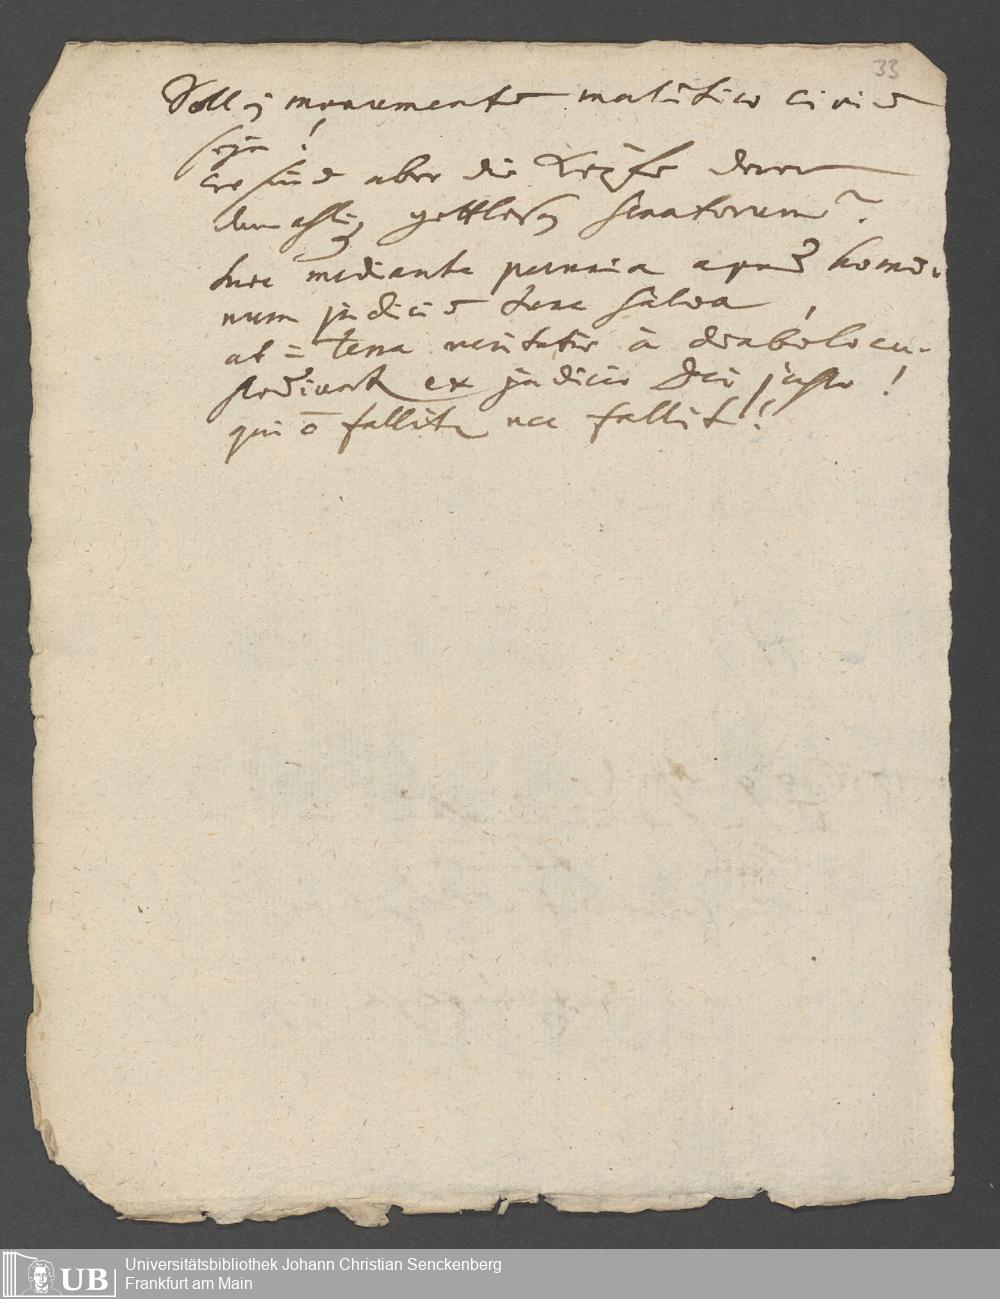 33
Soll monumente civi
seyn!
wo sind aber die Köpfe derer
gottlosen Senatorum?
haec mediante pecunia apud homi-
num judicia bene salva,
at in terra à diabolo cu-
stodiunt ex judicio Dei justo!
qui ō fallitur nec fallit!
UB
Universitätsbibliothek Johann Christian Senckenberg
Frankfurt am Main